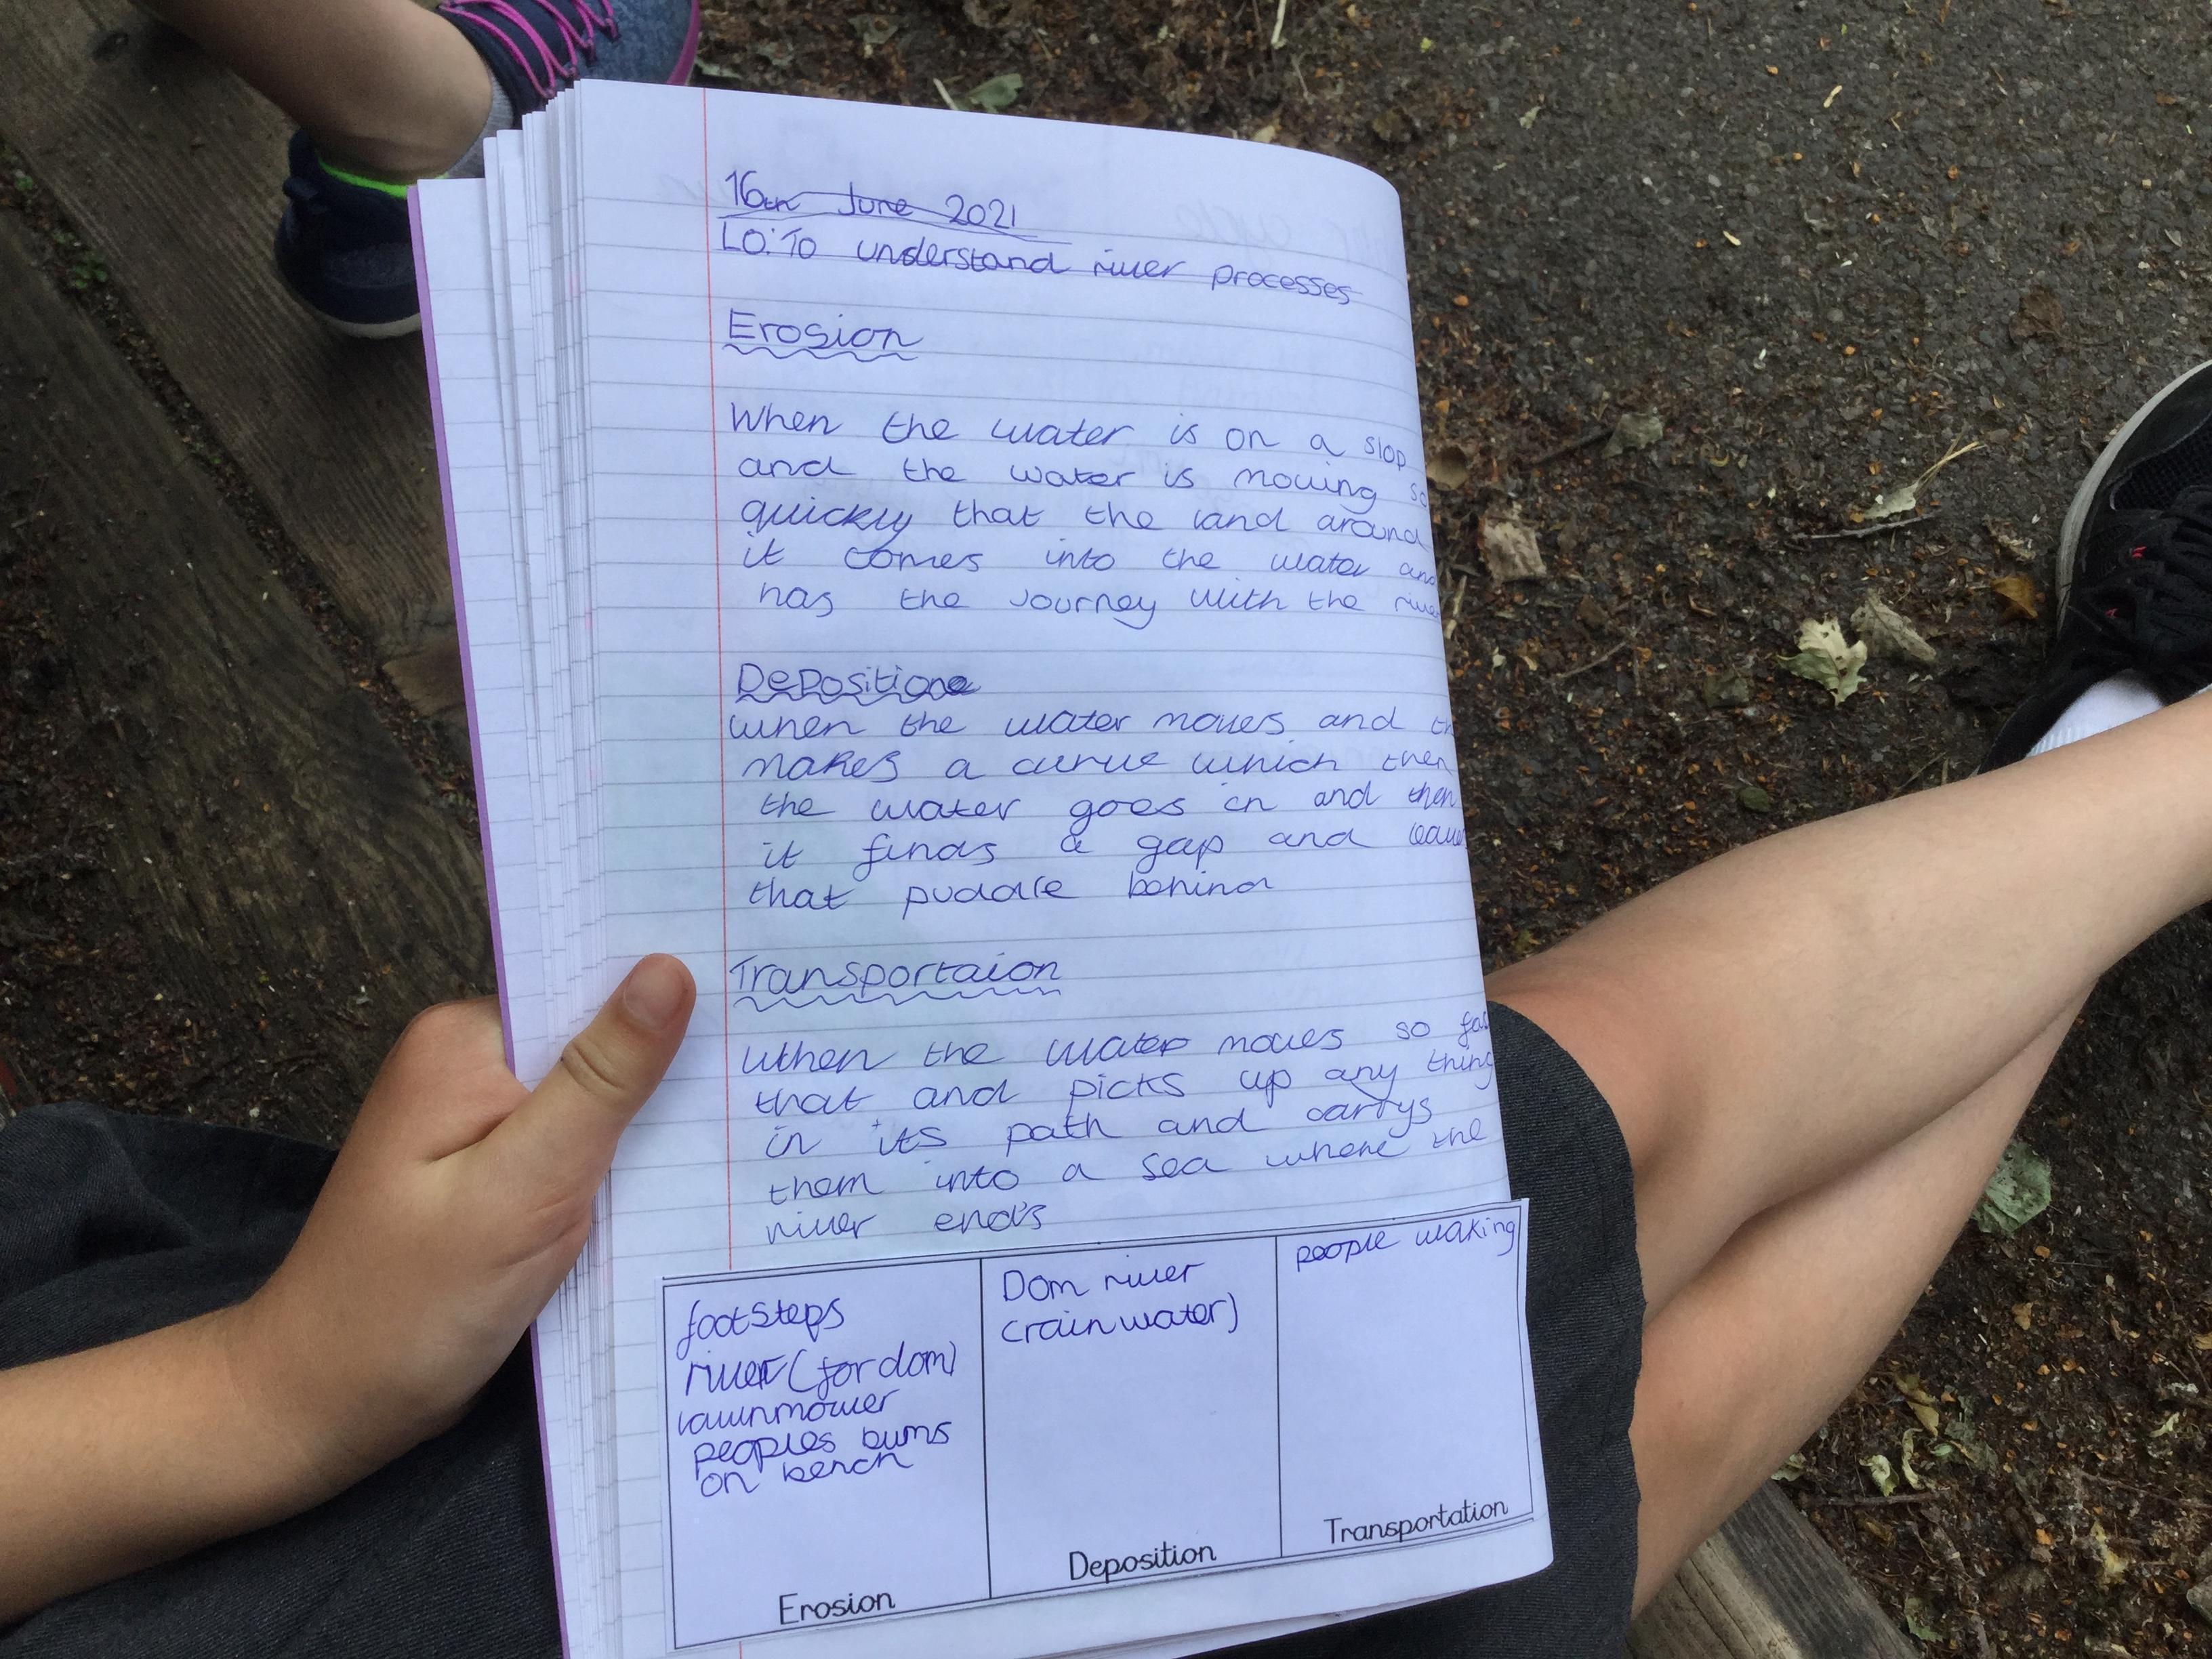 16th June 2021
LO: To understand river processes
Erosion
When the water is on a slop
and the water is moving so
quickly that the land around
it comes into the water and
has the journey with the river
Deposition
when the water moves and
makes a curve which then
the water goes in and then
it finds a gap and
that puddle behind
Transportaion
When the water moves so
that and picks up any thing
in its path and carrys
them into a sea where the
river ends
footsteps
river (for dom)
lawnmower
peoples bums
on bench
Erosion
Dom river
(rain water)
Deposition
people waking
Transportation